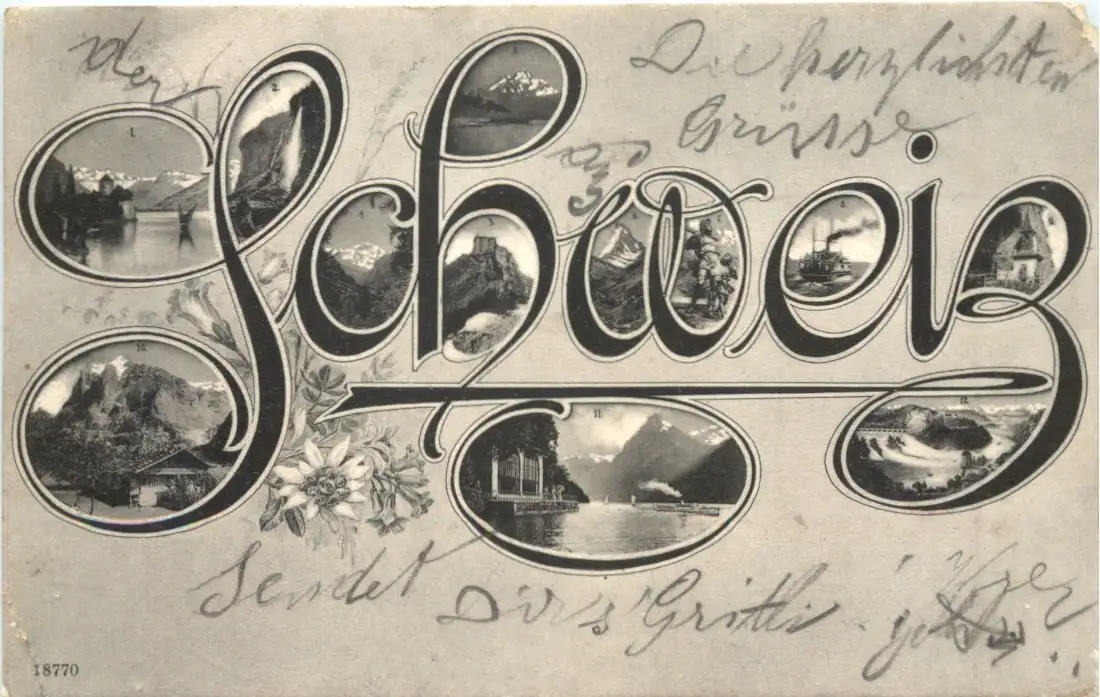 der
Die herzlichsten
Grüsse
Schweiz
1.
2.
3.
4.
5.
6.
7.
8.
9.
10.
11.
12.
Sendet
Dir's Gritli
18770